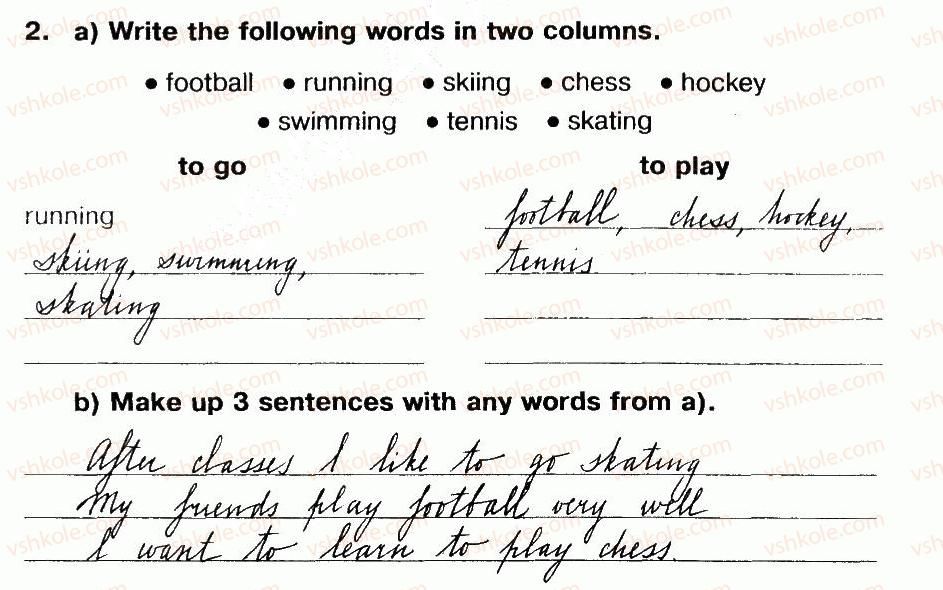 2. a) Write the following words in two columns.
• football • running • skiing • chess • hockey
• swimming • tennis • skating
to go to play
running football, chess, hockey,
skiing, swimming, tennis
skating
b) Make up 3 sentences with any words from a).
After classes I like to go skating
My friends play football very well
I want to learn to play chess.